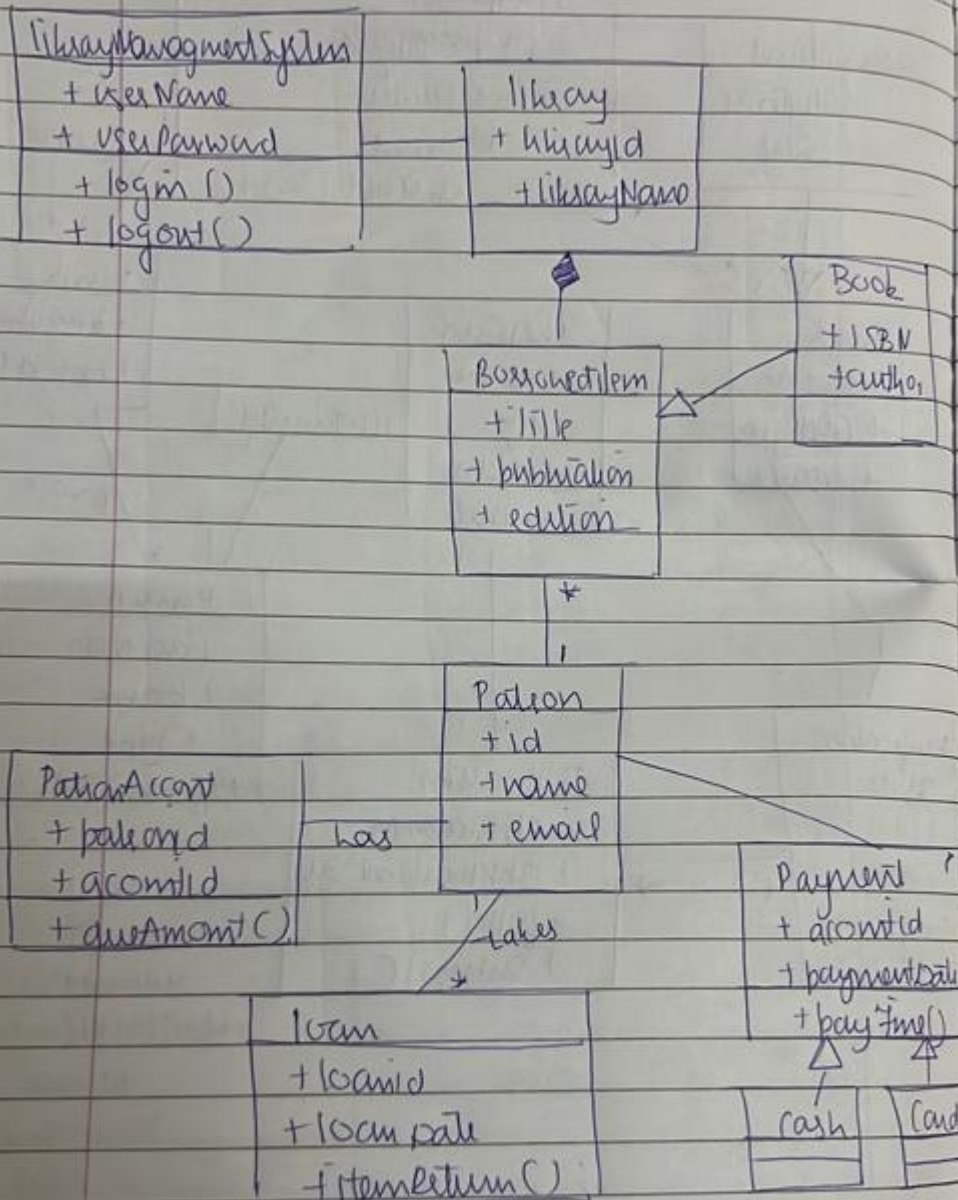 LibraryManagmentSystem
+ userName
+ userPassword
+ login ()
+ logout ()
library
+ libraryId
+ libraryName
Book
+ ISBN
+ author
BorrowedItem
+ title
+ publication
+ edition
*
1
Patron
+ id
+ name
+ email
PatronAccont
+ patronid
+ acontId
+ dueAmont ()
has
Payment
+ acontId
+ paymentDate
+ payFine()
1
takes
*
loan
+ loanid
+ loan Date
+ itemReturn ()
Cash
Card